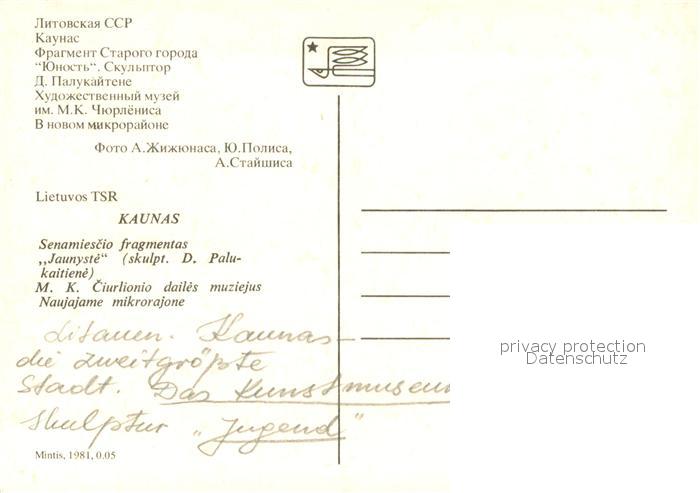 Литовская ССР
Каунас
Фрагмент Старого города
“Юность“. Скульптор
Д. Палукайтене
Художественный музей
им. М.К. Чюрлёниса
В новом микрорайоне
Фото А.Жижюнаса, Ю.Полиса,
А.Стайшиса
Lietuvos TSR
KAUNAS
Senamiesčio fragmentas
,,Jaunystė“ (skulpt. D. Palu-
kaitienė)
M. K. Čiurlionio dailės muziejus
Naujajame mikrorajone
Litauen. Kaunas –
die zweitgröpte
Stadt. Das Kunstmuseum
Skulptur „Jugend“
Mintis, 1981, 0.05
privacy protection
Datenschutz